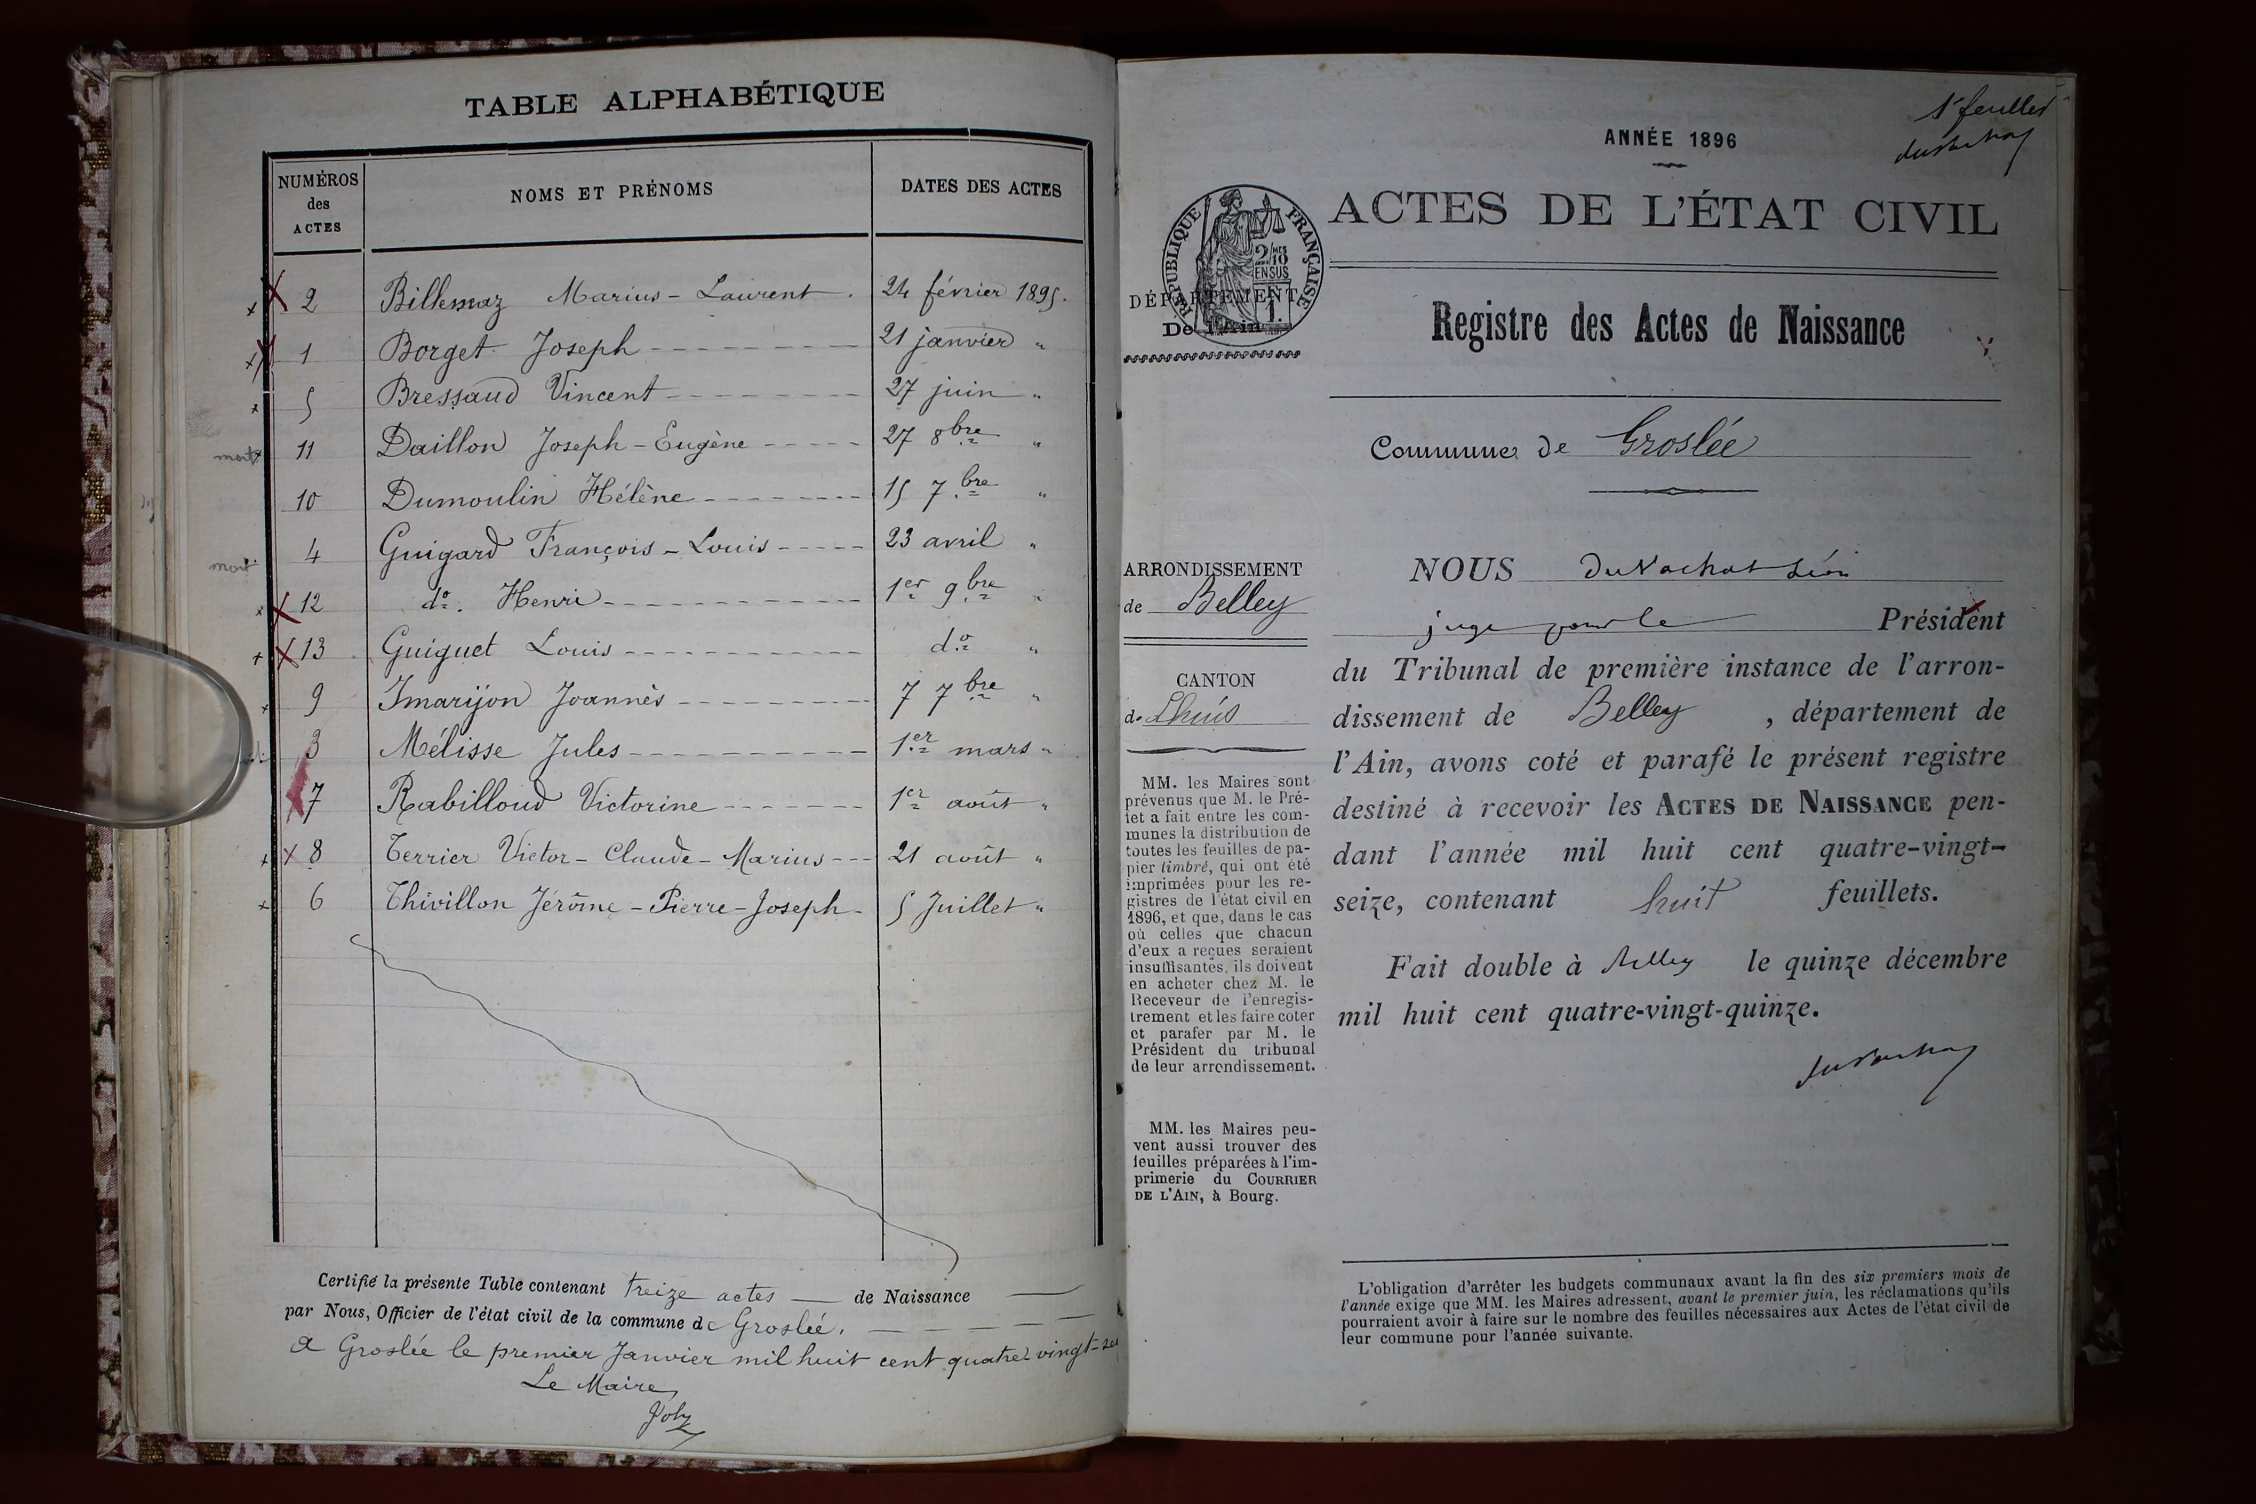 TABLE ALPHABÉTIQUE
NUMÉROS des ACTES
NOMS ET PRÉNOMS
DATES DES ACTES
2 Billemaz Marius - Laurent. 24 février 1895.
1 Borget Joseph 21 janvier "
5 Bressaud Vincent 27 juin "
mort 11 Daillon Joseph - Eugène 27 8bre "
10 Dumoulin Hélène 15 7bre "
4 Guigard François - Louis 23 avril "
mort
12 do. Henri 1er 9bre "
13 Guiguet Louis do "
9 Imarijon Joannès 7 7bre "
3 Mélisse Jules 1er mars "
7 Rabilloud Victorine 1er août "
8 Terrier Victor - Claude - Marius 21 août "
6 Thivillon Jérôme - Pierre - Joseph 5 Juillet "
Certifié la présente Table contenant treize actes de Naissance
par Nous, Officier de l'état civil de la commune de Groslée.
A Groslée le premier Janvier mil huit cent quatre vingt-
Le Maire
Joly
1r feuillet
ANNÉE 1896
ACTES DE L'ÉTAT CIVIL
RÉPUBLIQUE FRANÇAISE
2/10 MES
EN SUS
1.
DÉPARTEMENT
De l'Ain
Registre des Actes de Naissance
Commune de Groslée
ARRONDISSEMENT
de Belley
CANTON
de Lhuis
MM. les Maires sont
prévenus que M. le Pré-
fet a fait entre les com-
munes la distribution de
toutes les feuilles de pa-
pier timbré, qui ont été
imprimées pour les re-
gistres de l'état civil en
1896, et que, dans le cas
où celles que chacun
d'eux a reçues seraient
insuffisantes, ils doivent
en acheter chez M. le
Receveur de l'enregis-
trement et les faire coter
et parafer par M. le
Président du tribunal
de leur arrondissement.
MM. les Maires peu-
vent aussi trouver des
feuilles préparées à l'im-
primerie du COURRIER
DE L'AIN, à Bourg.
NOUS Duvachat Léon
juge pour le Président
du Tribunal de première instance de l'arron-
dissement de Belley, département de
l'Ain, avons coté et parafé le présent registre
destiné à recevoir les ACTES DE NAISSANCE pen-
dant l'année mil huit cent quatre-vingt-
seize, contenant huit feuillets.
Fait double à Belley le quinze décembre
mil huit cent quatre-vingt-quinze.
L'obligation d'arrêter les budgets communaux avant la fin des six premiers mois de
l'année exige que MM. les Maires adressent, avant le premier juin, les réclamations qu'ils
pourraient avoir à faire sur le nombre des feuilles nécessaires aux Actes de l'état civil de
leur commune pour l'année suivante.